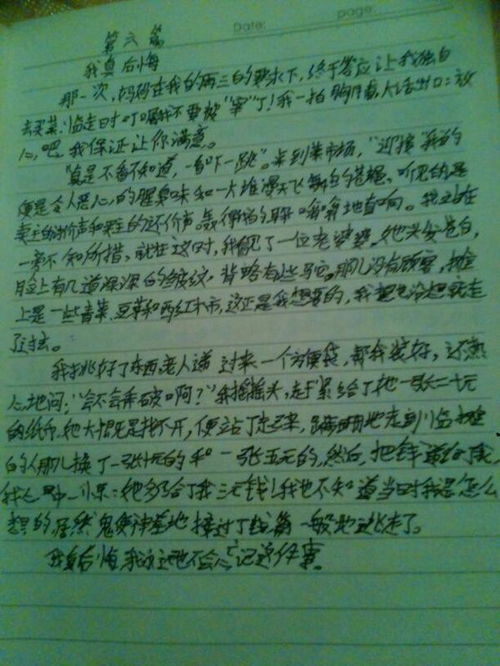 Date: page:
第六篇
我真后悔
那一次，妈妈在我的再三的要求下，终于答应让我独自
去买菜，临走时叮嘱我不要被"宰"了！我一拍胸脯，大话出口：放
心吧，我保证让你满意。
"真是不看不知道，一看吓一跳"。来到菜市场，"迎接"我的
便是令人恶心的腥臭味和一大堆漫天飞舞的苍蝇。听见的是
卖主的讨价声和买主的还价声，我站在
一旁不知所措，就在这时，我看见了一位老婆婆。她头发苍白，
脸上有几道深深的皱纹，背略有些驼。那儿没有顾客，摊
上是一些青菜、豆芽和西红柿，这正是我想要的，我便走
了过去。
我挑好了东西，老人递过来一个方便袋，帮我装好，还热
心地问："会不会弄破啊？"我摇摇头，赶紧给了她一张二十元
的纸币，她大概是找不开，便站了起来，蹒跚地走到临摊
的人那儿换了一张十元的和一张五元的，然后，把钱递给了我，
我心里一惊：她多给了我三元钱！我也不知道当时我是怎么
想的，居然鬼使神差地接过了钱，箭一般地逃走了。
我真后悔，我永远也不会忘记这件事。